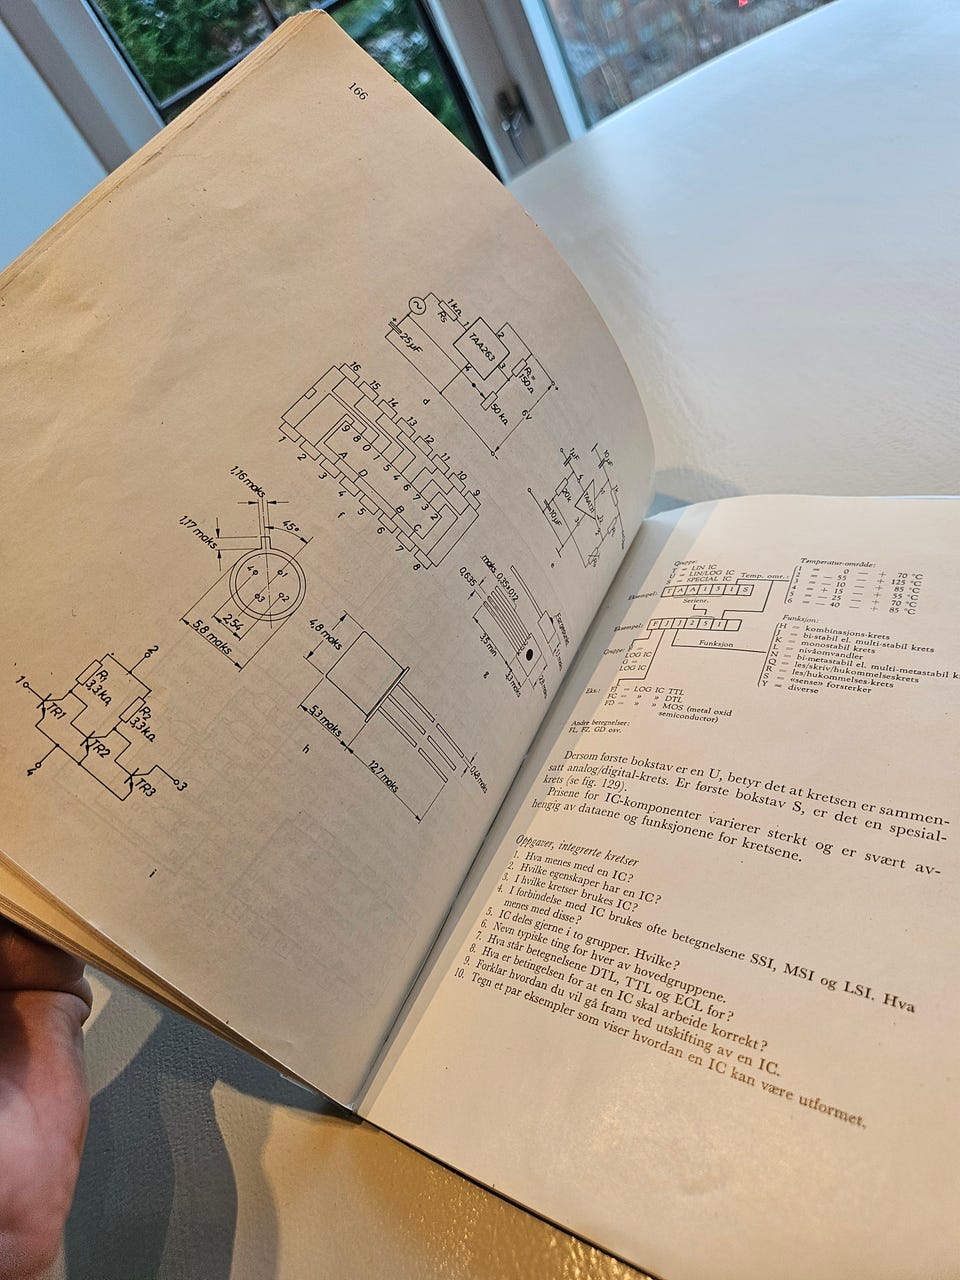 166
1kΩ
Rs
1
2
TAA263
3
4
25µF
+
RL=
150Ω
50 kΩ
6V
+
-
d
16
15
14
13
12
11
10
9
9
8
0
1
5
4
6
7
3
2
A
D
B
C
1
2
3
4
5
6
7
8
f
1,16 maks
1,17 maks
45°
4
1
3
2
2,54
5,8 maks
20k
10µF
e
0,635
maks 0,35±0,12
3,5 min
g
4,8 maks
5,3 maks
12,7 maks
0,48 maks
h
1
2
R1
3,3kΩ
R2
3,3kΩ
TR1
TR2
TR3
4
3
i
Gruppe:
T = LIN IC
U = LIN/LOG IC
S = SPECIAL IC
Temp. omr.:
Eksempel: T A A 1 3 1 S
Serienr.
Temperatur-område:
1 = 0 — + 70 °C
— 55 — + 125 °C
— 10 — + 85 °C
4 = + 15 — + 55 °C
5 = — 25 — + 70 °C
6 = — 40 — + 85 °C
Eksempel: F J J 1 2 5 1
Funksjon
LOG IC
G =
LOG IC
Funksjon:
H = kombinasjons-krets
J = bi-stabil el. multi-stabil krets
K = monostabil krets
L = nivåomvandler
N = bi-metastabil el. multi-metastabil
Q = les/skriv/hukommelseskrets
R = les/hukommelses-krets
S = «sense» forsterker
Y = diverse
Eks.: FJ = LOG IC TTL
FC = » » DTL
FD = » » MOS (metal oxid
semiconductor)
Andre betegnelser:
FL, FZ, GD osv.
Dersom første bokstav er en U, betyr det at kretsen er sammen-
satt analog/digital-krets. Er første bokstav S, er det en spesial-
krets (se fig. 129).
Prisene for IC-komponenter varierer sterkt og er svært av-
hengig av dataene og funksjonene for kretsene.
Oppgaver, integrerte kretser
1. Hva menes med en IC?
2. Hvilke egenskaper har en IC?
3. I hvilke kretser brukes IC?
4. I forbindelse med IC brukes ofte betegnelsene SSI, MSI og LSI. Hva
menes med disse?
5. IC deles gjerne i to grupper. Hvilke?
6. Nevn typiske ting for hver av hovedgruppene.
7. Hva står betegnelsene DTL, TTL og ECL for?
8. Hva er betingelsen for at en IC skal arbeide korrekt?
9. Forklar hvordan du vil gå fram ved utskifting av en IC.
10. Tegn et par eksempler som viser hvordan en IC kan være utformet.